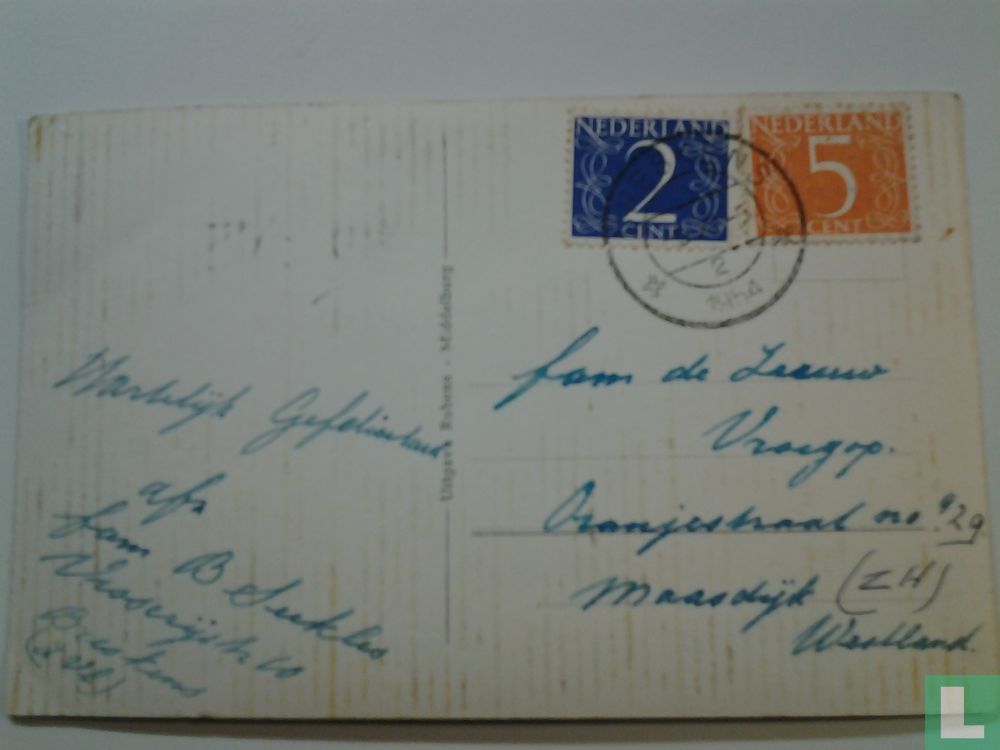 NEDERLAND
2
CENT
NEDERLAND
5
CENT
2
1954
Uitgave Rubens - Middelburg
Hartelijk Gefeliciteerd
afz
fam B
Visserijstr 60
Breskens
fam de Leeuw
Vroegop.
Oranjestraat no 29
Maasdijk (ZH)
Westland.
L